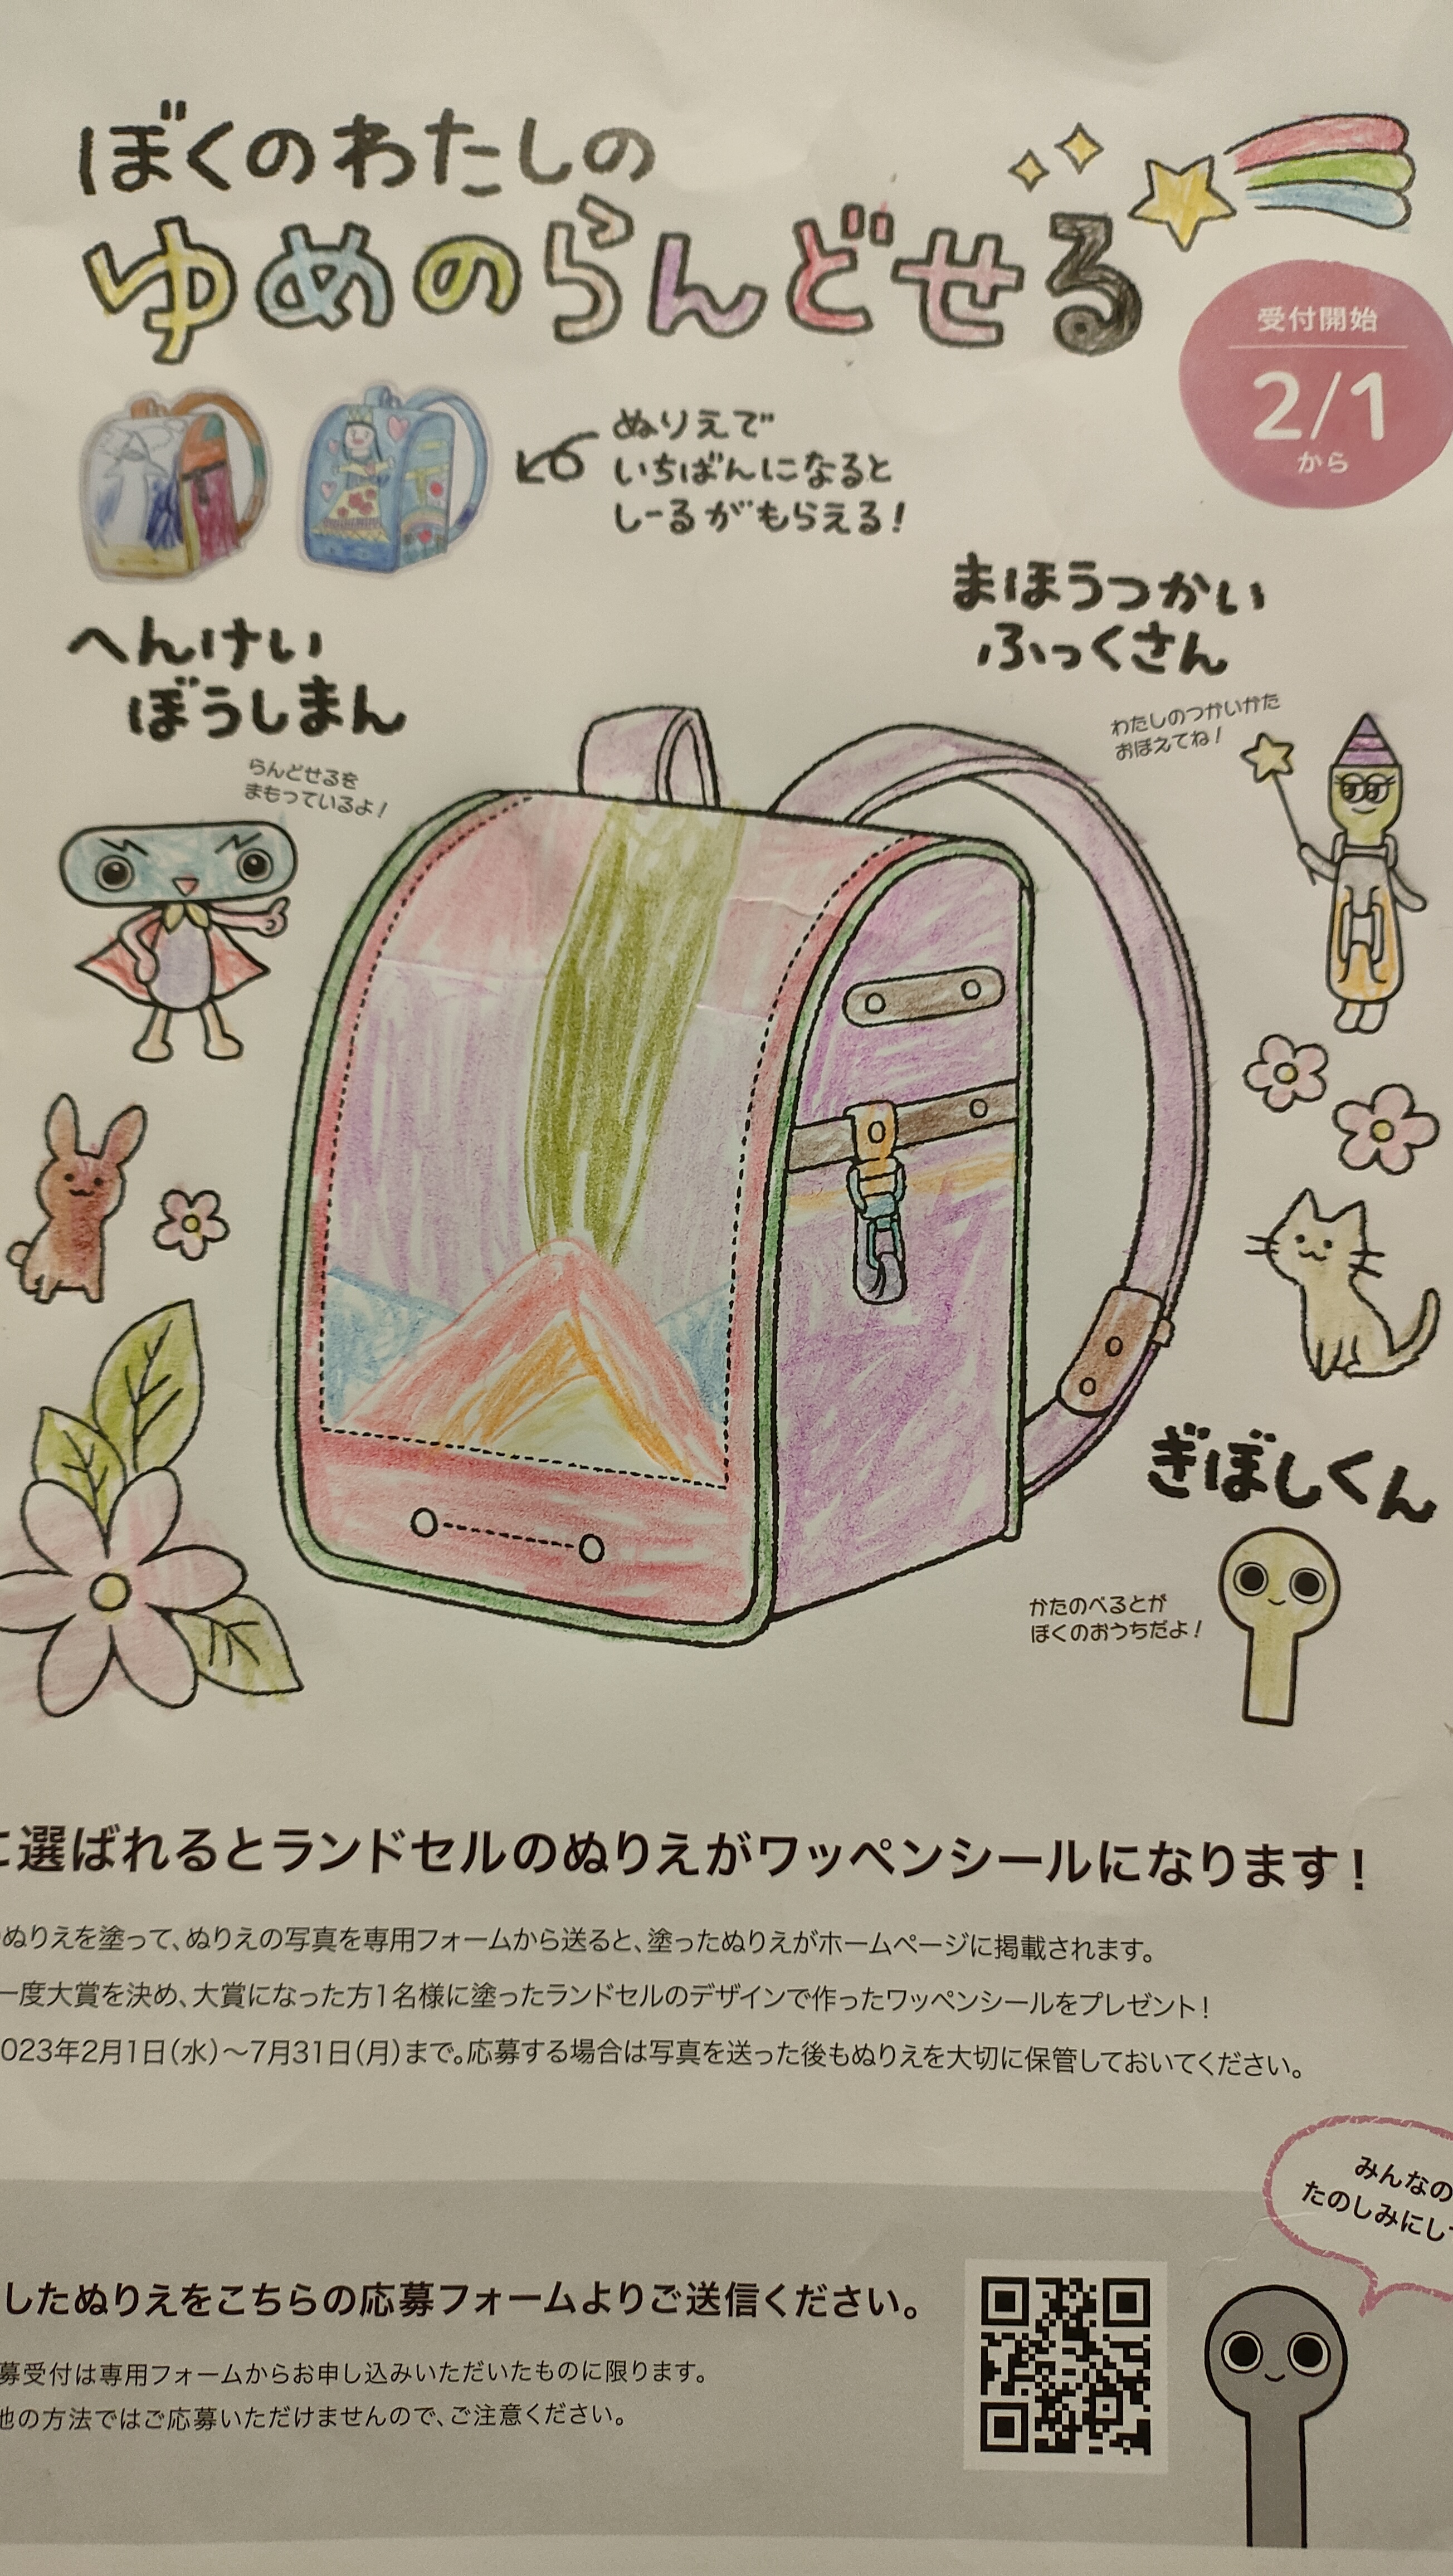 ぼくのわたしの
ゆめのらんどせる
受付開始
2/1
から
ぬりえで
いちばんになると
しーるがもらえる!
まほうつかい
ふっくさん
わたしのつかいかた
おぼえてね!
へんけい
ぼうしまん
らんどせるを
まもっているよ!
ぎぼしくん
かたのべるとが
ぼくのおうちだよ!
に選ばれるとランドセルのぬりえがワッペンシールになります!
ぬりえを塗って、ぬりえの写真を専用フォームから送ると、塗ったぬりえがホームページに掲載されます。
一度大賞を決め、大賞になった方1名様に塗ったランドセルのデザインで作ったワッペンシールをプレゼント!
023年2月1日(水)〜7月31日(月)まで。応募する場合は写真を送った後もぬりえを大切に保管しておいてください。
みんなの
たのしみにし
したぬりえをこちらの応募フォームよりご送信ください。
募受付は専用フォームからお申し込みいただいたものに限ります。
他の方法ではご応募いただけませんので、ご注意ください。